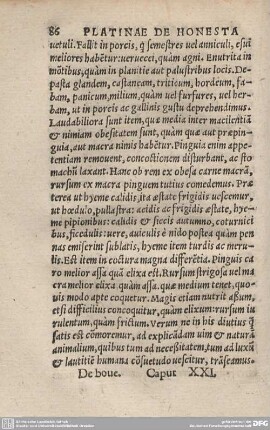 86 PLATINAE DE HONESTA
uetuli. Fallit in porcis, q̃ semestres uel anniculi, esui
meliores habẽtur: ueruecei, quàm agni. Enutrita in
mõtibus, quàm in planitie aut palustribus locis. De-
pasta glandem, castaneam, triticum, hordeum, fa-
bam, panicum, milium, quàm uel furfures, uel her-
bam, ut in porcis ac gallinis gustu deprehendimus.
Laudabiliora sunt item, quæ media inter macilentiã
& nimiam obesitatem sunt, quàm quæ aut præpin-
guia, aut macra nimis habẽtur. Pinguia enim appe-
tentiam remouent, concoctionem disturbant, ac sto
machũ laxant. Hanc ob rem ex obesa carne macrã,
rursum ex macra pinguem tutius comedimus. Præ
terea ut hyeme calidis, ita æstate frigidis uescemur,
ut hœdulo, pullastra: acidis ac frigidis æstate, hye-
me pipionibus: calidis & siccis autumno, coturnici
bus, ficedulis: uere, auiculis è nido postea quàm pen
nas emiserint sublatis, hyeme item turdis ac meru-
lis. Est item in coctura magna differẽtia. Pinguis ca
ro melior assa quã elixa est. Rursum strigosa uel ma
cra melior elixa quàm assa. quæ medium tenet, quo-
uis modo apte coquetur. Magis etiam nutrit assum,
et si difficilius concoquitur, quàm elixum: rursum iu
rulentum, quàm frictum. Verum ne in his diutius q̃
satis est cõmoremur, ad explicãdam uim & naturã
animalium, quibus tum ad necessitatem, tum ad luxũ
& lautitiẽ humana cõsuetudo uescitur, trãseamus.
De boue. Caput XXI.